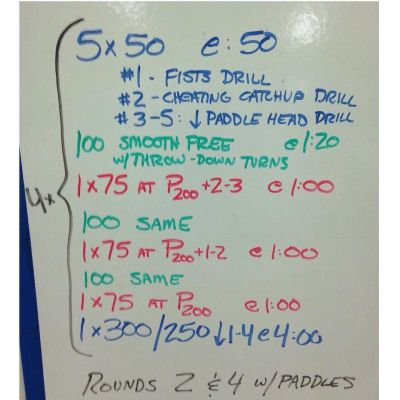 5x50 e:50
#1 - FISTS DRILL
#2 - CHEATING CATCHUP DRILL
#3-5: ↓ PADDLE HEAD DRILL
100 SMOOTH FREE @ 1:20
W/THROW-DOWN TURNS
4x
1x75 AT P200+2-3 @ 1:00
100 SAME
1x75 AT P200+1-2 @ 1:00
100 SAME
1x75 AT P200 @ 1:00
1x300/250 ↓1-4 @ 4:00
ROUNDS 2 & 4 W/ PADDLES